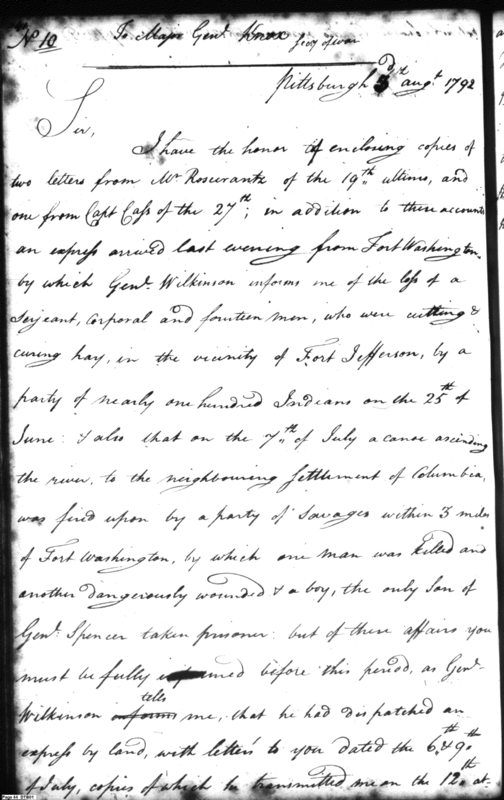 No 10
To Major Genl. Knox Secy of war
Pittsburgh 3d augt 1792
Sir,
I have the honor of enclosing copies of
two letters from Mr Roseurantz of the 19th ultimo, and
one from Capt Cass of the 27th; in addition to these accounts
an express arrived last evening from Fort Washington,
by which Genl. Wilkinson informs me of the loss of a
Serjeant, Corporal and fourteen men, who were cutting &
curing hay, in the vicinity of Fort Jefferson, by a
party of nearly one hundred Indians on the 25th of
June: & also that on the 7th of July a canoe ascending
the river, to the neighbouring settlement of Columbia,
was fired upon by a party of Savages within 3 miles
of Fort Washington, by which one man was killed and
another dangerously wounded & a boy, the only son of
Genl. Spencer taken prisoner: but of these affairs you
must be fully informed before this period, as Genl.
Wilkinson informs tells me, that he had dispatched an
express by land, with letters to you dated the 6. & 9th
of July, copies of which he transmitted me on the 12th at-